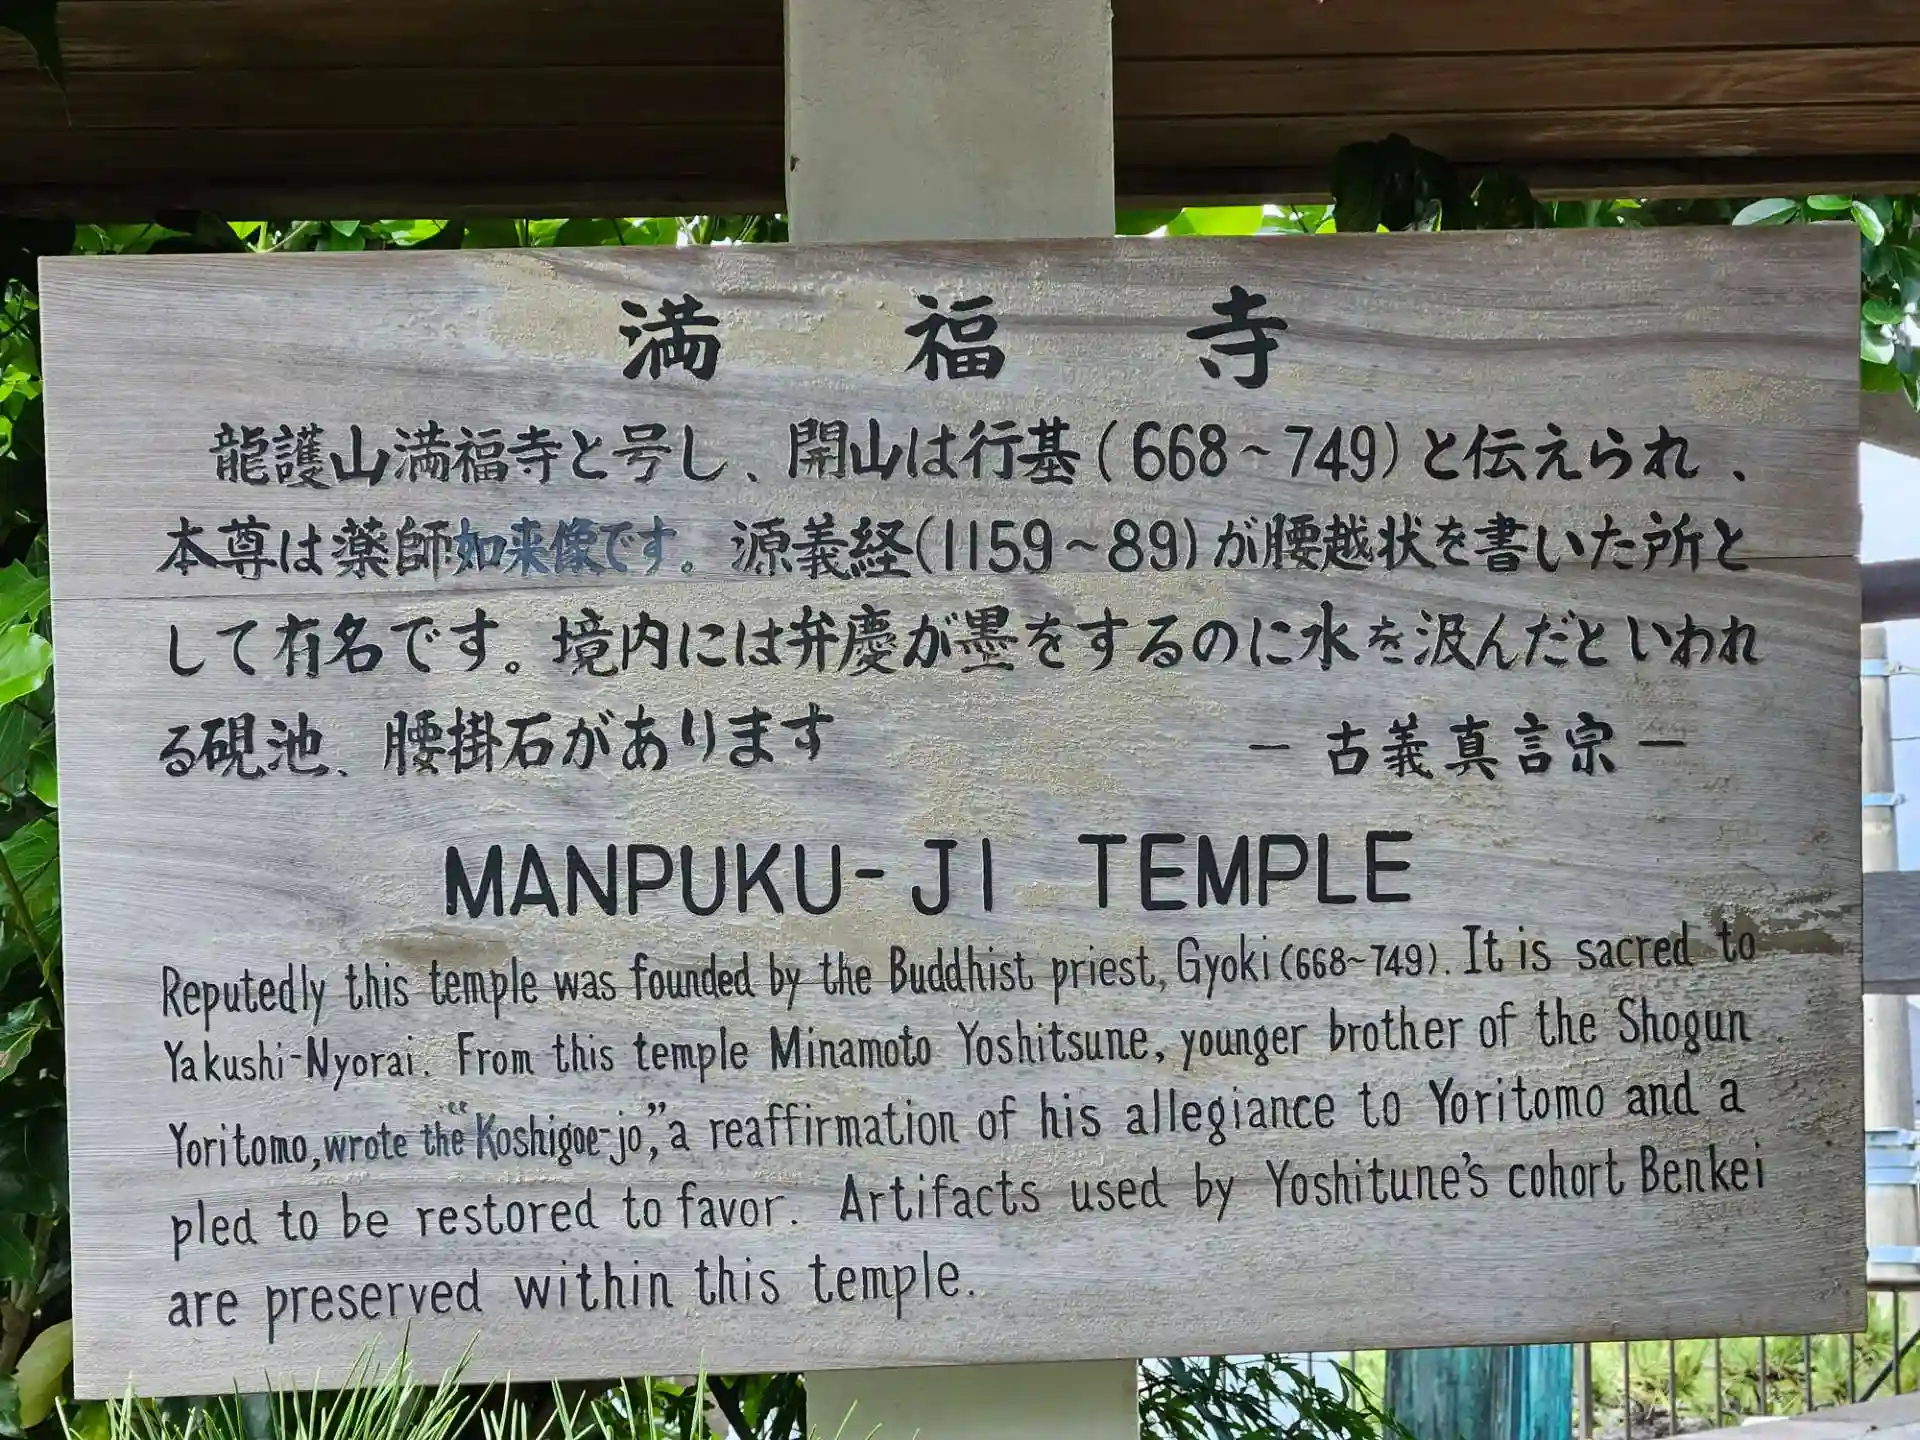 満福寺
龍護山満福寺と号し、開山は行基(668~749)と伝えられ、
本尊は薬師如来像です。源義経(1159~89)が腰越状を書いた所と
して有名です。境内には弁慶が墨をするのに水を汲んだといわれ
る硯池、腰掛石があります
－古義真言宗－
MANPUKU-JI TEMPLE
Reputedly this temple was founded by the Buddhist priest, Gyoki(668~749). It is sacred to
Yakushi-Nyorai. From this temple Minamoto Yoshitsune, younger brother of the Shogun
Yoritomo, wrote the “Koshigoe-jo,” a reaffirmation of his allegiance to Yoritomo and a
pled to be restored to favor. Artifacts used by Yoshitune's cohort Benkei
are preserved within this temple.